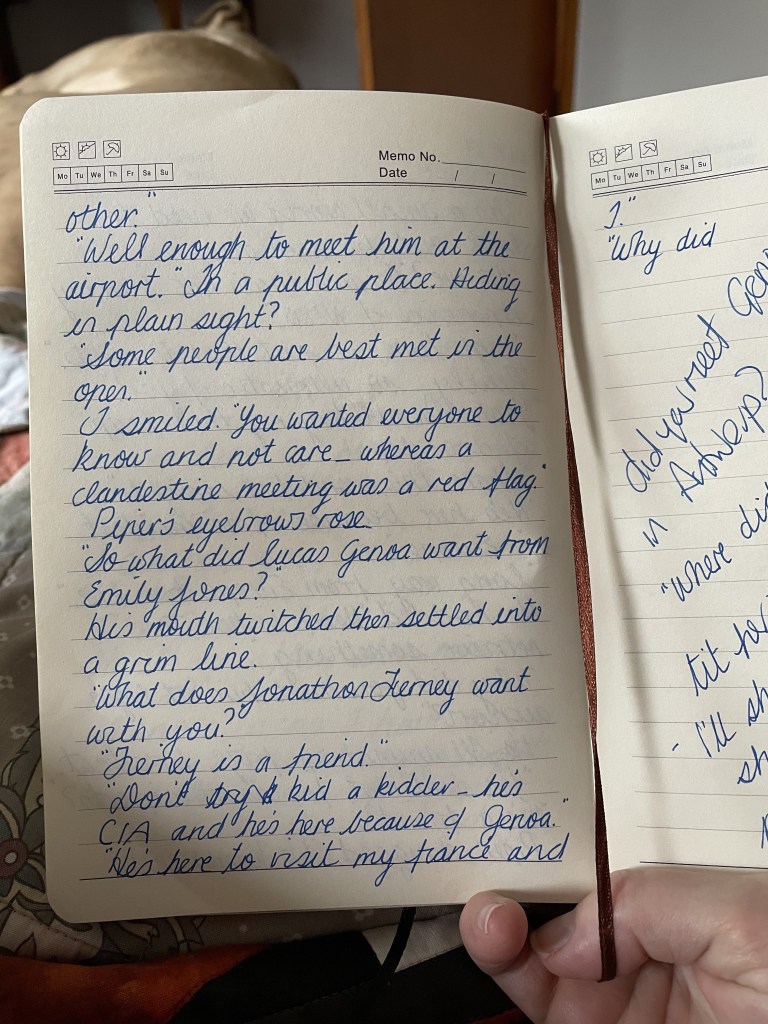 Memo No.
Mo Tu We Th Fr Sa Su
Date / /
other."
"Well enough to meet him at the
airport." In a public place. Hiding
in plain sight?
"Some people are best met in the
open."
I smiled. "You wanted everyone to
know and not care - whereas a
clandestine meeting was a red flag."
Piper's eyebrows rose
"So what did Lucas Genoa want from
Emily Jones?"
His mouth twitched then settled into
a grim line.
"What does Jonathon Tierney want
with you?"
"Tierney is a friend."
"Don't try & kid a kidder - he's
CIA and he's here because of Genoa."
"He's here to visit my fiance and
Mo Tu We Th Fr Sa Su
I."
"Why did
did you meet
in
"Where did
tit
- I'll